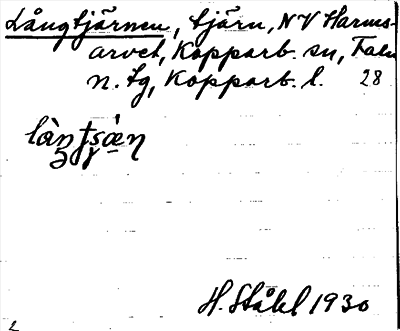 Långtjärnen, tjärn, NV Harmsarvet, Kopparb. sn, Falu
n. tg, Kopparb. l. 28
H. Ståhl 1930
2